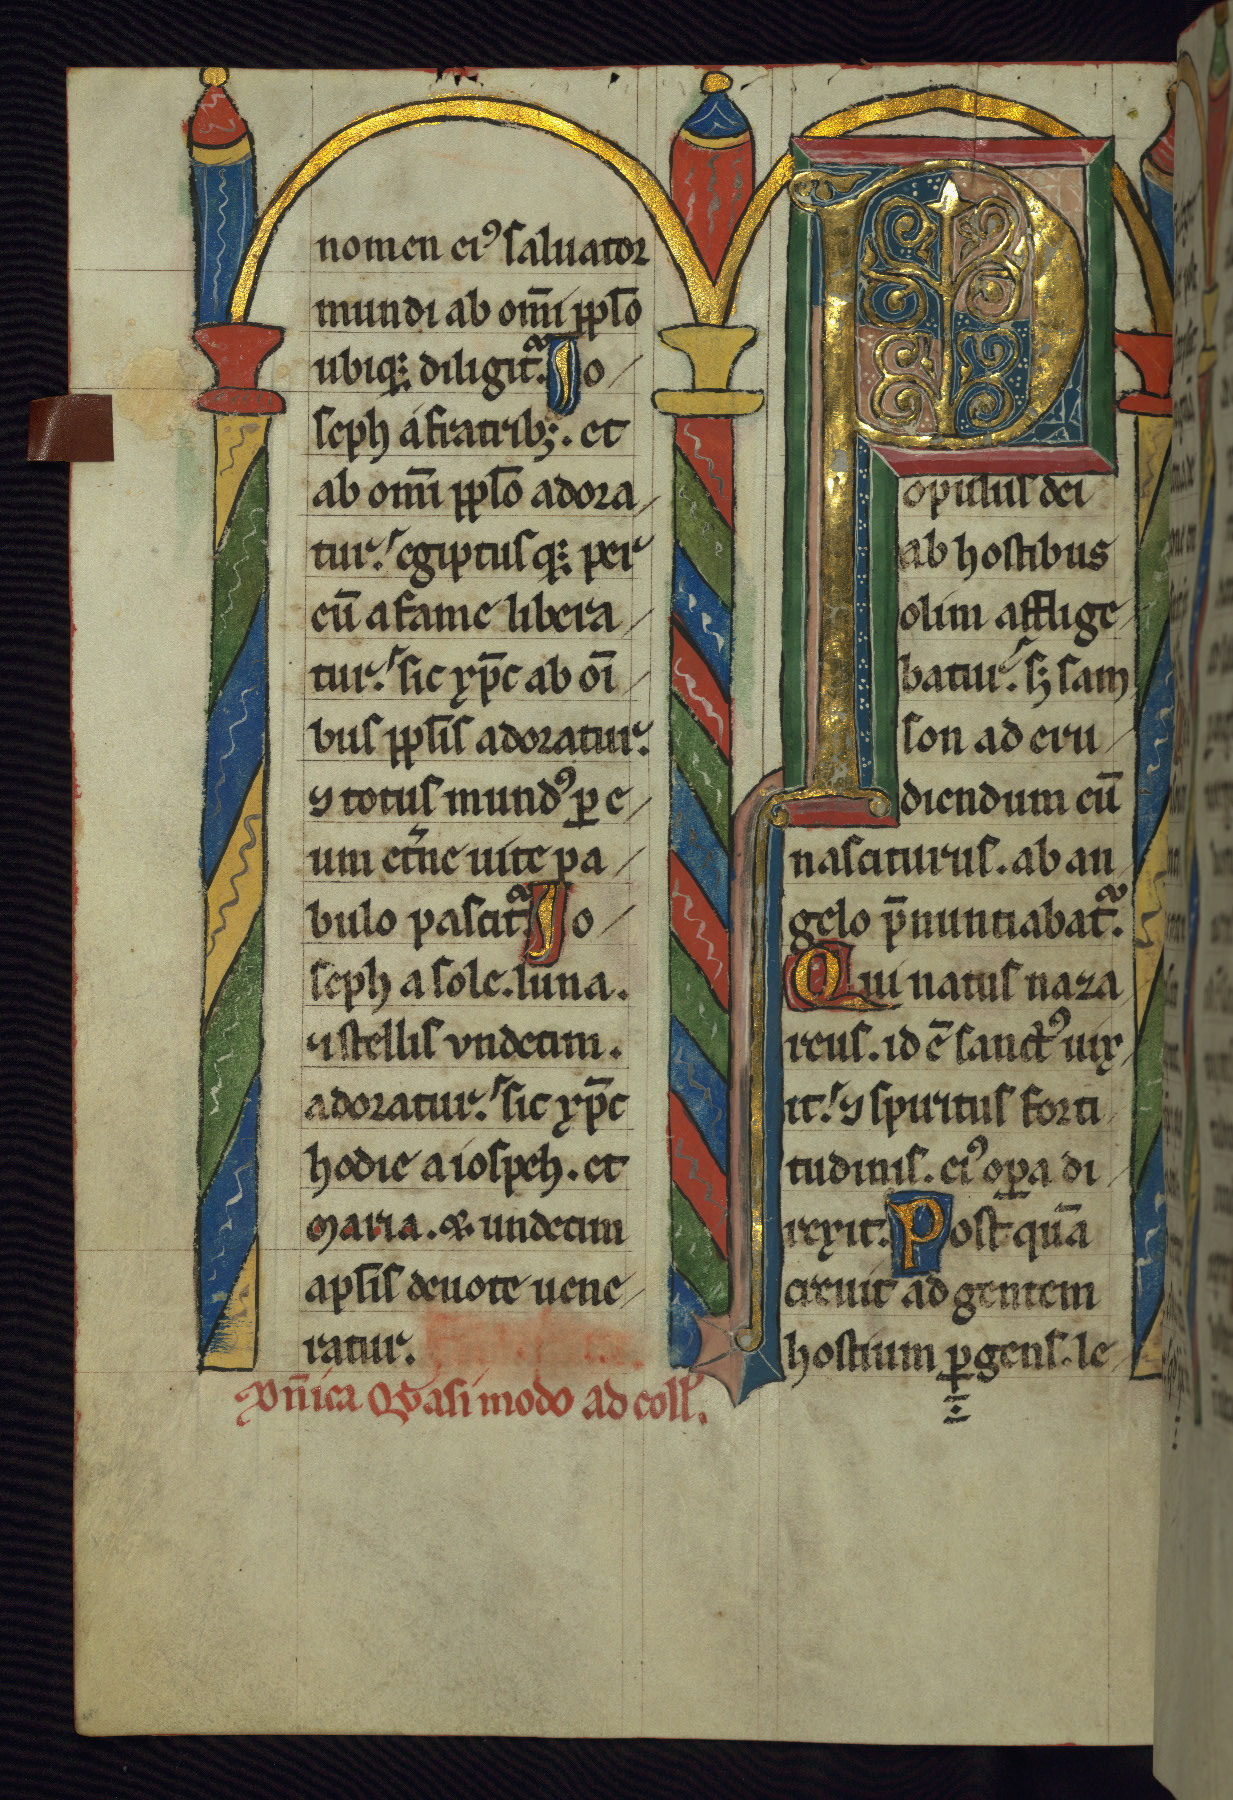 nomen ei⁹ saluator
mundi ab om̄i pp̄lo
ubiq; diligit᷑. Jo
seph a fratrib;. et
ab om̄i pp̄lo adora
tur. egiptusq; per
eū a fame libera
tur. sic xp̄c ab oī
bus pp̄lis adoratur.
⁊ totus mund⁹ ꝑ e
um et̄ne uite pa
bulo pascit᷑. Jo
seph a sole. luna.
⁊ stellis vndecim.
adoratur. sic xp̄c
hodie a iospeh. et
maria. & undecim
apl̄is deuote uene
ratur.
Dn̄ica Q̄asi modo ad coll̄.
Populus dei
ab hostibus
olim afflige
batur. sʒ sam
son ad eru
diendum eū
nasciturus. ab an
gelo p̄nuntiabat᷑.
Qui natus naza
reus. id ē sanct⁹ uix
it. ⁊ spiritus forti
tudinis. ei⁹ oꝑa di
rexit. Post quā
creuit ad gentem
hostium ꝑgens. le